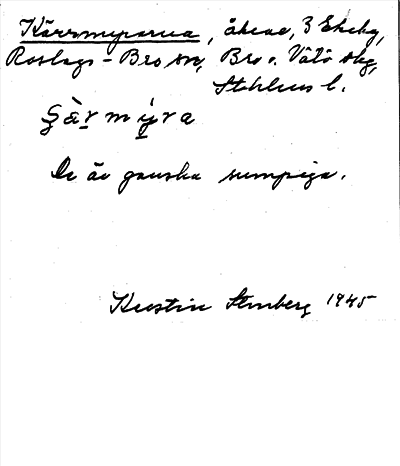 Kärrmyrarna, åkrar, 3 Ekeby,
Roslags-Bro sn, Bro o. Vätö skg,
Sthlms l.
De är ganska sumpiga.
Kerstin Stenberg 1945